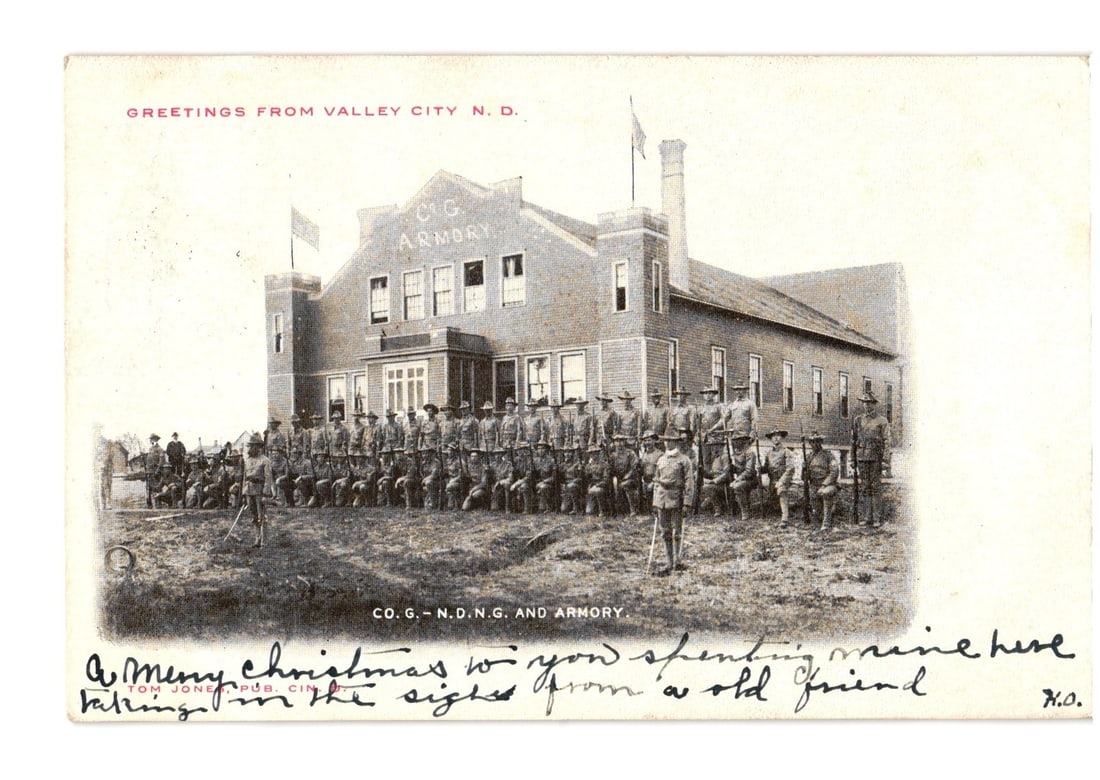 GREETINGS FROM VALLEY CITY N. D.
Co G
ARMORY.
CO. G. – N.D.N.G. AND ARMORY.
A Merry Christmas to you spenting mine here
TOM JONES, PUB. CIN. O.
taking in the sights from a old friend
H.O.